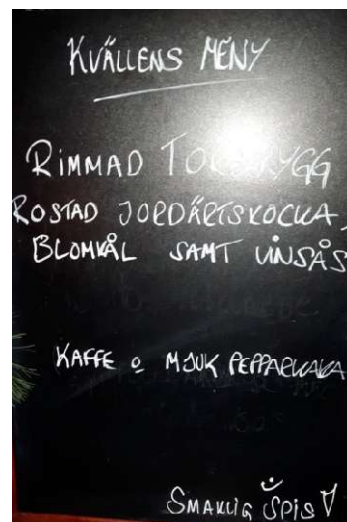 KVÄLLENS MENY
RIMMAD TORSKRYGG
ROSTAD JORDÄRTSKOCKA,
BLOMKÅL SAMT VINSÅS
KAFFE O MJUK PEPPARKAKA
SMAKLIG SPIS